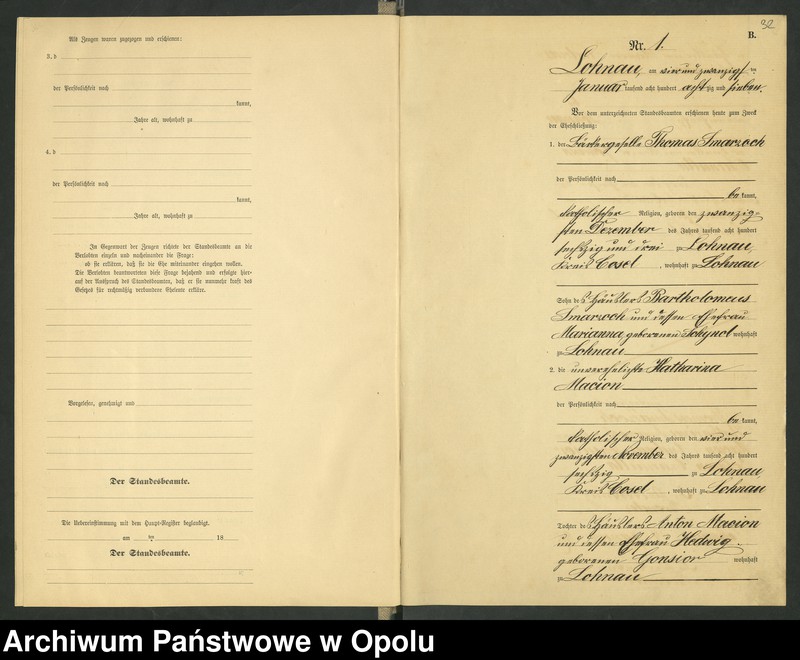 Als Zeugen waren zugezogen und erschienen:
3. d
der Persönlichkeit nach
kannt,
Jahre alt, wohnhaft zu
4. d
der Persönlichkeit nach
kannt,
Jahre alt, wohnhaft zu
In Gegenwart der Zeugen richtete der Standesbeamte an die
Verlobten einzeln und nacheinander die Frage:
ob sie erklären, daß sie die Ehe miteinander eingehen wollen.
Die Verlobten beantworteten diese Frage bejahend und erfolgte hier-
auf der Ausspruch des Standesbeamten, daß er sie nunmehr kraft des
Gesetzes für rechtmäßig verbundene Eheleute erkläre.
Vorgelesen, genehmigt und
Der Standesbeamte.
Die Uebereinstimmung mit dem Haupt-Register beglaubigt.
am ten 18
Der Standesbeamte.
32
B.
Nr. 1.
Lohnau, am vier und zwanzigsten
Januar tausend acht hundert achtzig und sieben.
Vor dem unterzeichneten Standesbeamten erschienen heute zum Zweck
der Eheschließung:
1. der Gärtnergeselle Thomas Smarzoch
der Persönlichkeit nach
be kannt,
katholischer Religion, geboren den zwanzig-
sten Dezember des Jahres tausend acht hundert
sechszig und drei zu Lohnau,
Kreis Cosel, wohnhaft zu Lohnau
Sohn des Häuslers Bartholomeus
Smarzoch und dessen Ehefrau
Marianna, geborenen wohnhaft
zu Lohnau
2. die unverehelichte Katharina
Macion
der Persönlichkeit nach
be kannt,
katholischer Religion, geboren den vier und
zwanzigsten November des Jahres tausend acht hundert
sechszig zu Lohnau
Kreis Cosel, wohnhaft zu Lohnau
Tochter des Häuslers Anton Macion
und dessen Ehefrau Hedwig
geborenen Gonsior wohnhaft
zu Lohnau
Archiwum Państwowe w Opolu